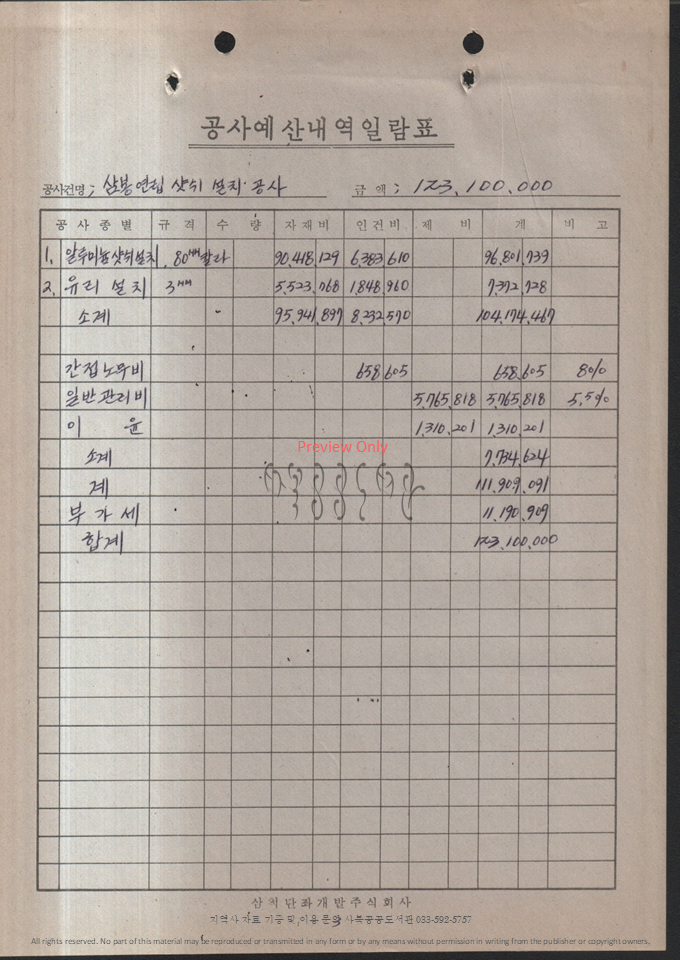 공사예산내역일람표
공사건명; 삼봉연립 샷쉬 설치 공사 금액; 123,100,000
공사종별 규격 수량 자재비 인건비 제비 계 비고
1. 알루미늄샷쉬설치 80mm칼라 90,418,129 6,383,610 96,801,739
2. 유리 설치 3mm 5,523,768 1,848,960 7,372,728
소계 95,941,897 8,232,570 104,174,467
간접노무비 658,605 658,605 8%
일반관리비 5,765,818 5,765,818 5,5%
이윤 1,310,201 1,310,201
Preview Only
소계 7,734,624
계 111,909,091
부가세 11,190,909
합계 123,100,000
삼척탄좌개발주식회사
지역사 자료 기증 및 이용 문의 사북공공도서관 033-592-5757
All rights reserved. No part of this material may be reproduced or transmitted in any form or by any means without permission in writing from the publisher or copyright owners.